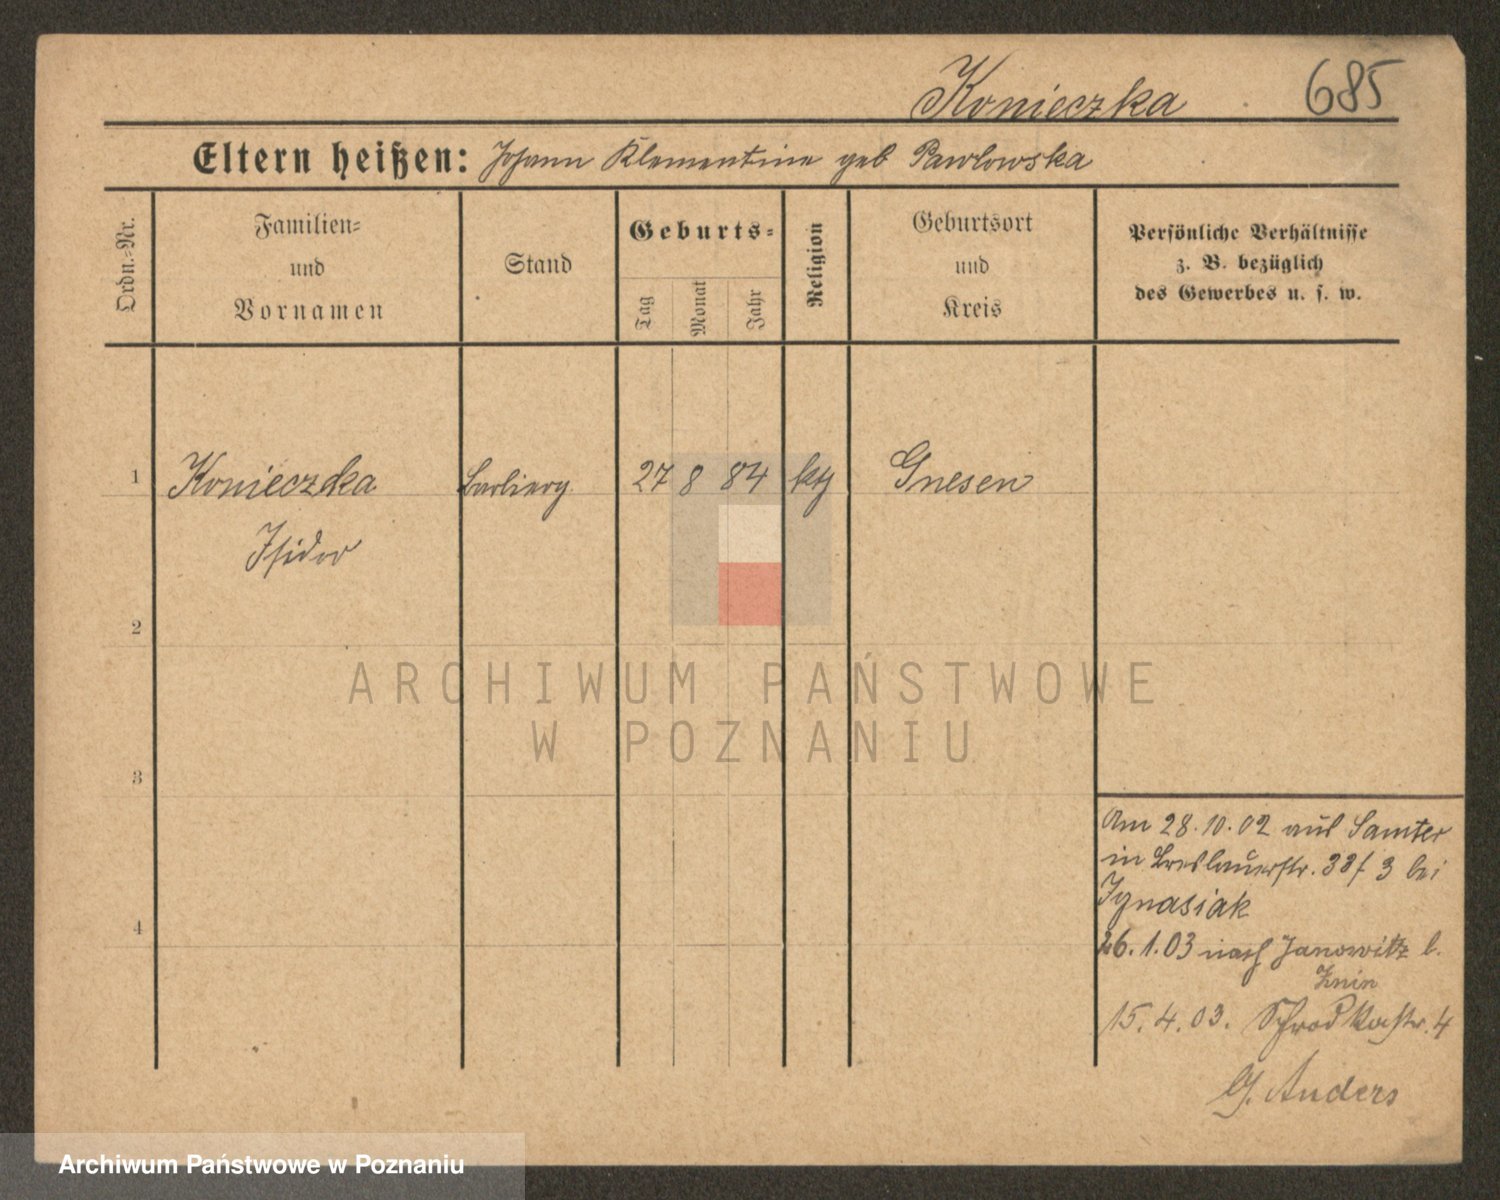 Konieczka 685
Eltern heißen: Johann Klementine geb Pawlowska
Ordn.-Nr.
Familien-
und
Vornamen
Stand
Geburts-
Tag
Monat
Jahr
Religion
Geburtsort
und
Kreis
Persönliche Verhältnisse
z. B. bezüglich
des Gewerbes u. s. w.
1 Konieczka 27 8 84 kth Gnesen
Isidor
2
3
4
Am 28.10.02 aus Samter
in Breslauerstr. 38/3 bei
Ignasiak
26.1.03 nach Janowitz b.
Znin
15.4.03. Schrodkastr. 4
G. Anders
ARCHIWUM PAŃSTWOWE
W POZNANIU
Archiwum Państwowe w Poznaniu